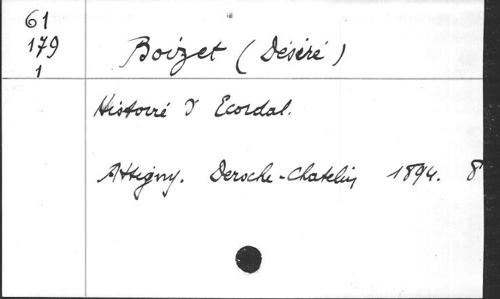 61
179
1
Boizet (Déséré)
Histoiré d Ecordal.
Attigny. Deroche-Chatelin 1894. 8